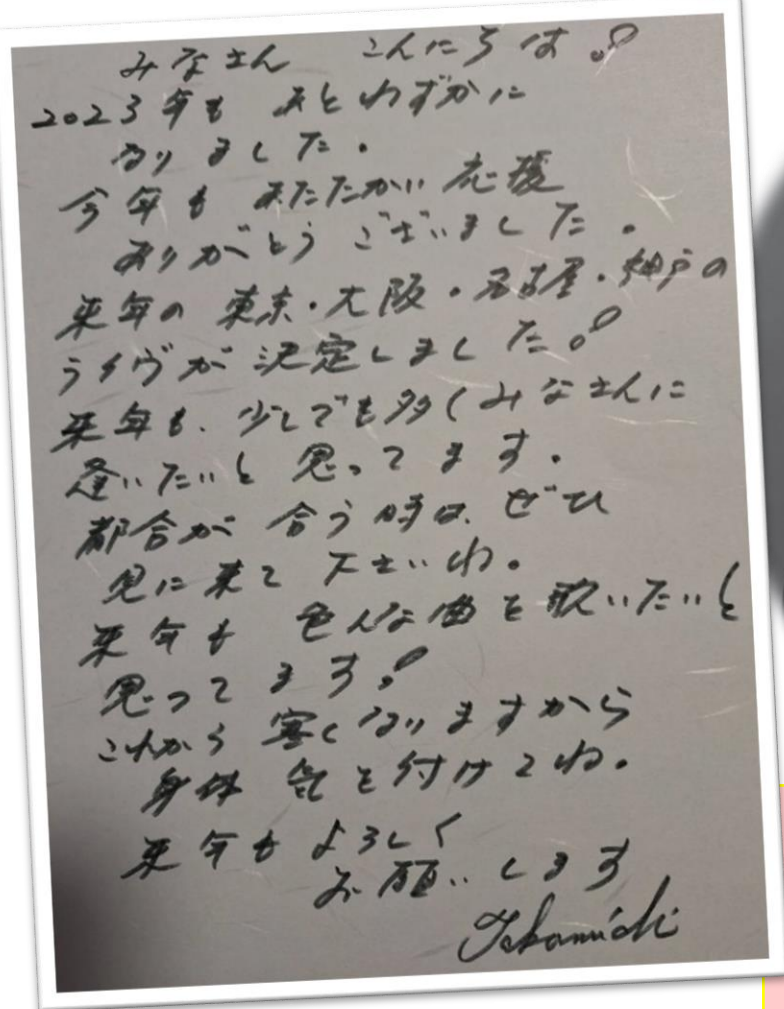 みなさん こんにちは!
2023年も あとわずかに
なりました。
今年も あたたかい 応援
ありがとう ございました。
来年の 東京・大阪・名古屋・神戸の
ライヴが 決定しました!
来年も、少しでも多くみなさんに
逢いたいと 思ってます。
都合が 合う時は、ぜひ
見に来て 下さいね。
来年も 色んな曲を歌いたいと
思ってます!
これから 寒くなりますから
身体 気を付けてね。
来年もよろしく
お願いします
Takamichi